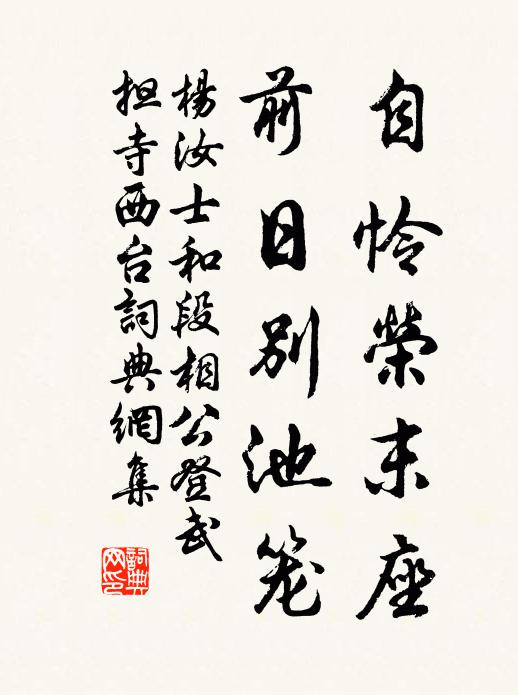 自怜榮末座
前日别池笼
楊汝士和段相公登武
担寺西台詞典網集
詞典网印